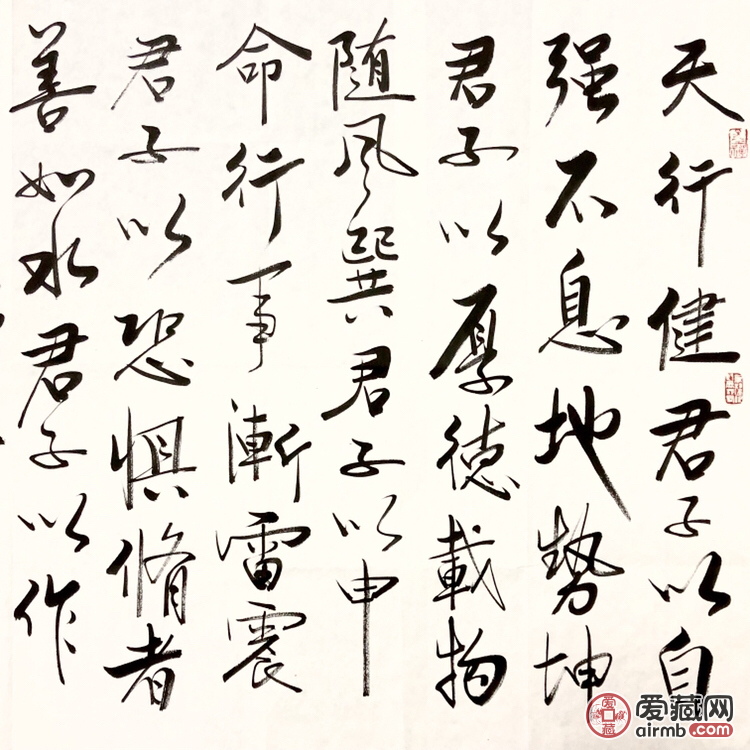 天行健君子以自
强不息地势坤
君子以厚德載物
随风巽君子以申
命行事漸雷震
君子以恐惧脩者
善如水君子以作
爱藏网
airmb.com